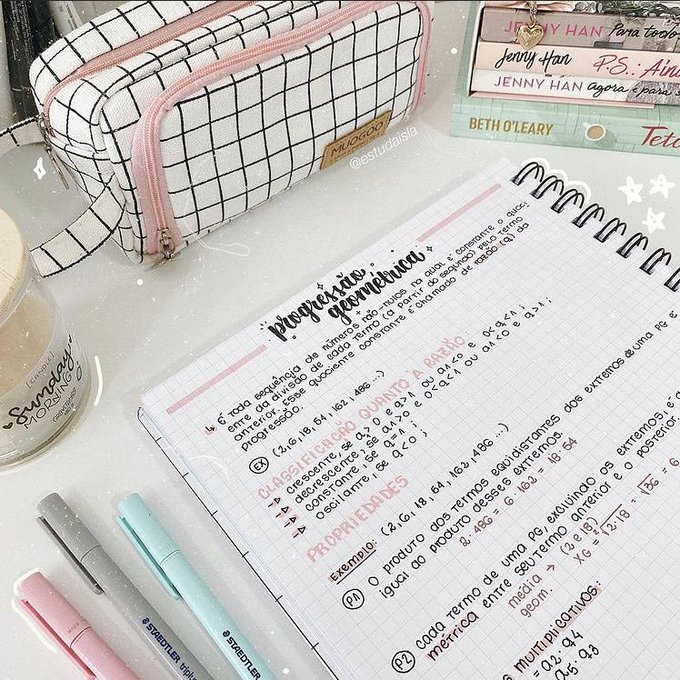 JENNY HAN Para todos
Jenny Han P.S.: Aind
JENNY HAN agora e para
BETH O'LEARY Teto
MUOGOO
@estudaisla
progressão
geométrica
↳ É toda sequência de números não-nulos na qual é constante o quoci
ente da divisão de cada termo (a partir do segundo) pelo termo
anterior. Esse quociente constante é chamado de razão (q) da
progressão.
EX (2, 6, 18, 54, 162, 486 ...)
CLASSIFICAÇÃO QUANTO A RAZÃO
crescente, se a1 > 0 e q > 1 ou a1 < 0 e 0 < q < 1 ;
decrescente, se a1 > 0 e 0 < q < 1 ou a1 < 0 e q > 1 ;
constante, se q = 1 ;
oscilante, se q < 0 ;
PROPRIEDADES
Exemplo: (2, 6, 18, 54, 162, 486 ...)
P1 O produto dos termos equidistantes dos extremos de uma PG é
igual ao produto desses extremos.
2 . 486 = 6 . 162 = 18 . 54
P2 Cada termo de uma PG, excluindo os extremos, é a
métrica entre seu termo anterior e o posterior.
média → (2 e 18)
geom. x6 = √2.18 = √36 = 6
multiplicativos:
= a2 . q4
a5 . q3
[CANDLE]
Sunday
MORNING
STAEDTLER triplus
STAEDTLER